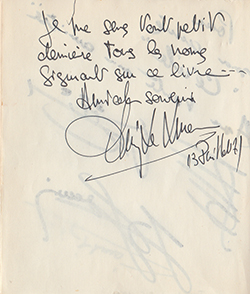 Je me sens tout petit
derrière tous les noms
figurant sur ce livre —
Amical souvenir
13 Juillet 71